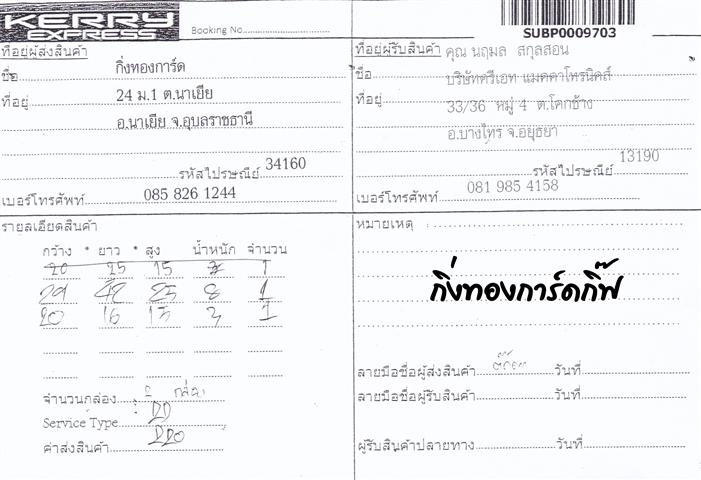 KERRY
EXPRESS
Booking No.
SUBP0009703
ที่อยู่ผู้ส่งสินค้า
ชื่อ กิ่งทองการ์ด
ที่อยู่ 24 ม.1 ต.นาเยีย
อ.นาเยีย จ.อุบลราชธานี
รหัสไปรษณีย์ 34160
เบอร์โทรศัพท์ 085 826 1244
ที่อยู่ผู้รับสินค้า คุณ นฤมล สกุลสอน
ชื่อ บริษัทครีเอท แมคคาโทรนิคส์
ที่อยู่ 33/36 หมู่ 4 ต.โคกช้าง
อ.บางไทร จ.อยุธยา
รหัสไปรษณีย์ 13190
เบอร์โทรศัพท์ 081 985 4158
รายละเอียดสินค้า
กว้าง * ยาว * สูง น้ำหนัก จำนวน
20 25 15 1
29 42 25 8 1
20 16 15 1
จำนวนกล่อง 2 กล่อง
Service Type : DD
ค่าส่งสินค้า
หมายเหตุ :
กิ่งทองการ์ดกิ๊ฟ
ลายมือชื่อผู้ส่งสินค้า วันที่
ลายมือชื่อผู้รับสินค้า วันที่
ผู้รับสินค้าปลายทาง วันที่